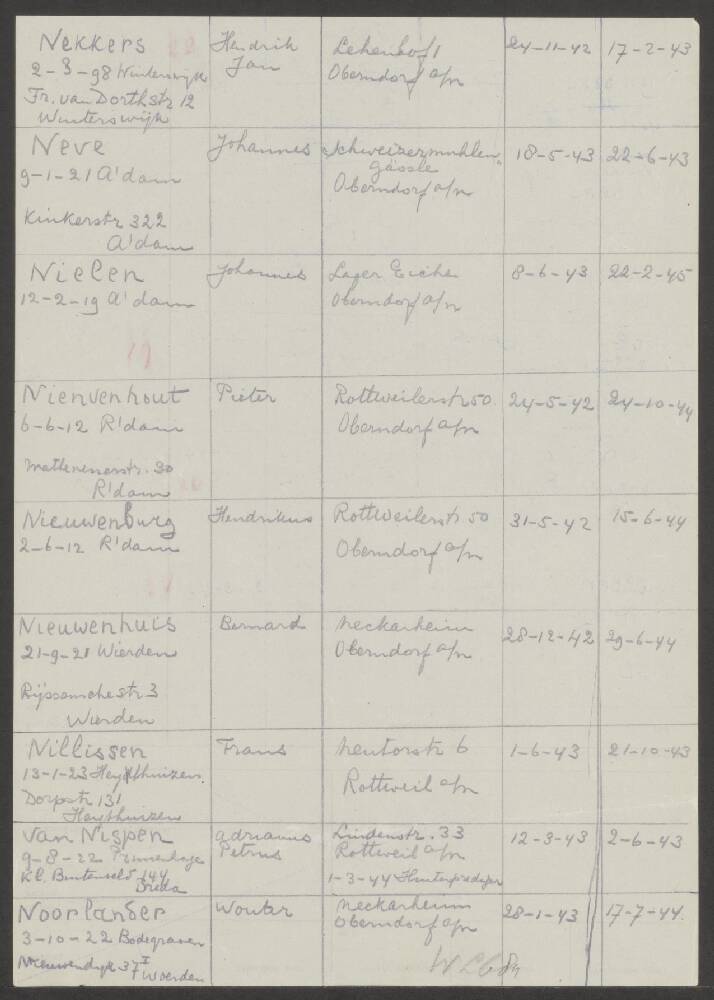 Nekkers Hendrik Lehenhof 1 24-11-42 17-2-43
2-3-98 Winterswijk Jan Oberndorf a/n
Fr. van Dorthstr 12
Winterswijk
Neve Johannes "Schweizermuhlen 18-5-43 22-6-43
9-1-21 A'dam Gässle"
Oberndorf a/n
Kinkerstr 322
A'dam
Nielen Johannes Lager Eiche 8-6-43 22-2-45
12-2-19 A'dam Oberndorf a/n
Nienvenhout Pieter Rottweilerstr 50 24-5-42 24-10-44
6-6-12 R'dam Oberndorf a/n
30
R'dam
Nieuwenburg Hendrikus Rottweilerstr 50 31-5-42 15-6-44
2-6-12 R'dam Oberndorf a/n
Nieuwenhuis Bernard Neckarheim 28-12-42 29-6-44
21-9-21 Wierden Oberndorf a/n
3
Wierden
Nillissen Frans 6 1-6-43 21-10-43
13-1-23 Heythuizen Rottweil a/n
Dorpstr 131
Heythuizen
Van Nispen Adrianus Lindenstr. 33 12-3-43 2-6-43
9-8-22 Prinsenhage Petrus Rottweil a/n
Kl. 144 1-3-44
Breda
Noorlander Wouter Neckarheim 28-1-43 17-7-44.
3-10-22 Bodegraven Oberndorf a/n
Nieuwendijk 37 I
Woerden